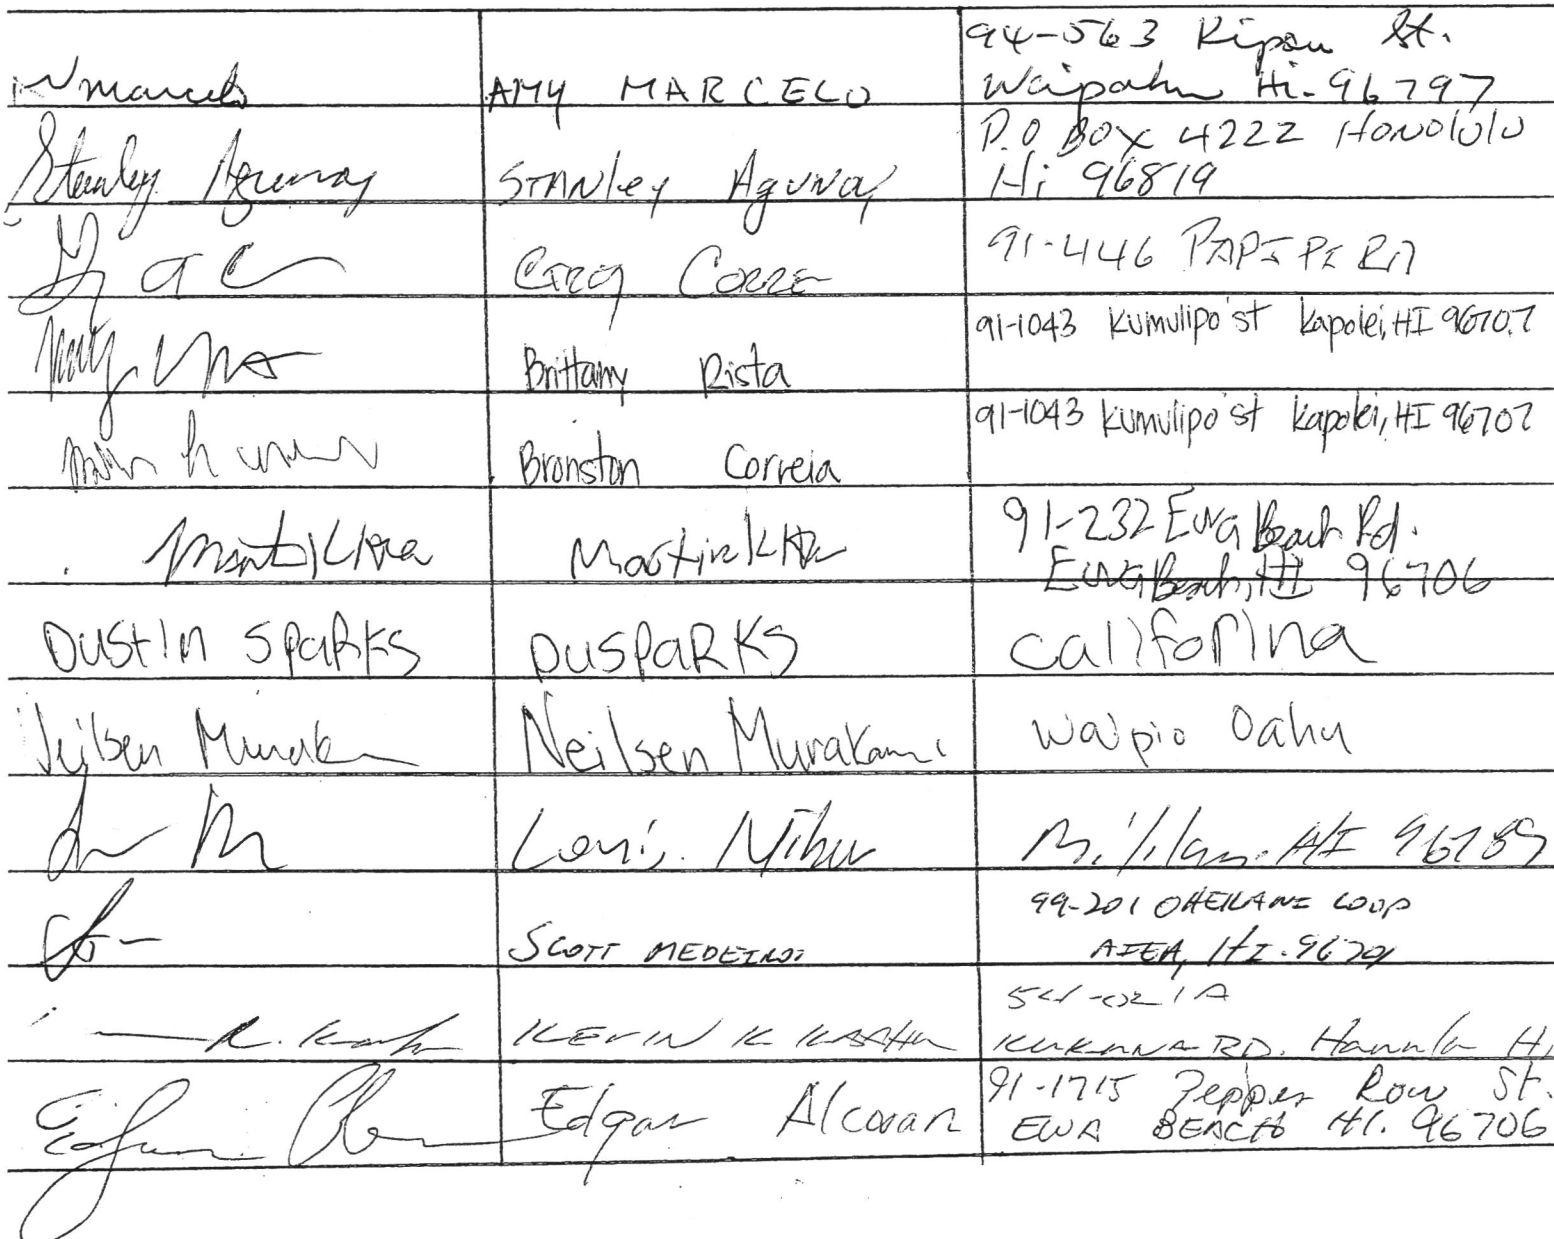 marcelo AMY MARCELO 94-563 Kipou St.
Waipahu Hi. 96797
Stanley Agunoy STANley Agunoy P.O BOX 4222 HONOlulu
Hi 96819
Greg 91-446 PAPIPI RD
Brittany Rista 91-1043 Kumulipo st Kapolei, HI 96707
Bronston Correia 91-1043 Kumulipo st Kapolei, HI 96707
91-232 Ewa Beach Rd.
Ewa Beach, HI 96706
DUStIN SPaRKS DUSPaRKS califorina
Neilsen Neilsen Murakami Waipio Oahu
Louis HI 96789
SCOTT MEDEIROS 99-201 OHEKANI LOOP
AIEA, HI. 96701
54-021A
R. KEVIN K KUKUNA RD. Hauula Hi
Edgar Edgar Alcoran 91-1715 Pepper Row St.
EWA BEACH HI. 96706